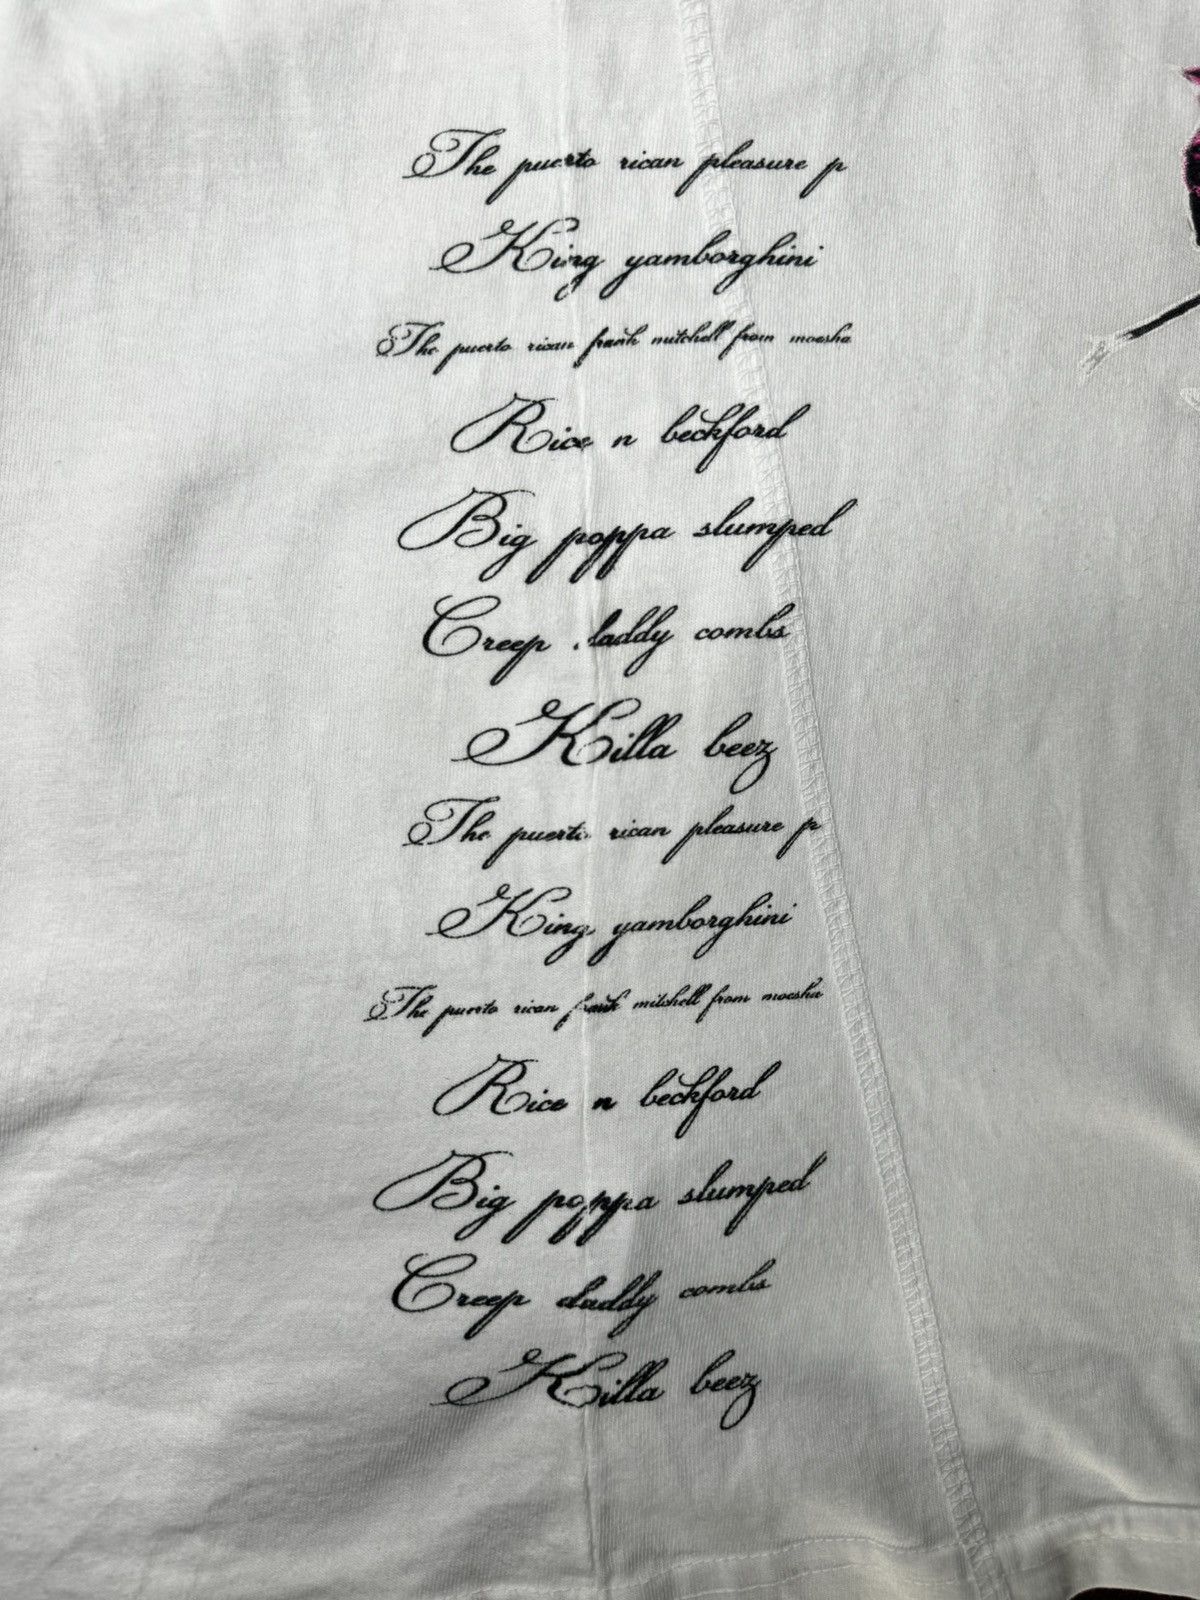 The puerto rican pleasure p
King yamborghini
The puerto rican frank mitchell from moesha
Rice n beckford
Big poppa slumped
Creep daddy combs
Killa beez
The puerto rican pleasure p
King yamborghini
The puerto rican frank mitchell from moesha
Rice n beckford
Big poppa slumped
Creep daddy combs
Killa beez